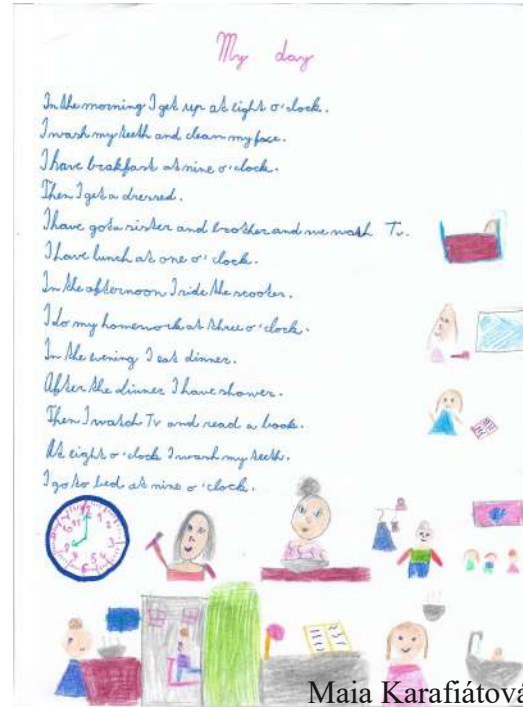 My day
In the morning I get up at eight o'clock.
I wash my teeth and clean my face.
I have brakfast at nine o'clock.
Then I get a dressed.
I have got a sister and brother and we wash Tv.
I have lunch at one o'clock.
In the afternoon I ride the scooter.
I do my homework at three o'clock.
In the evening I eat dinner.
After the dinner I have shower.
Then I watch Tv and read a book.
At eight o'clock I wash my teeth.
I go to bed at nine o'clock.
Maia Karafiátová